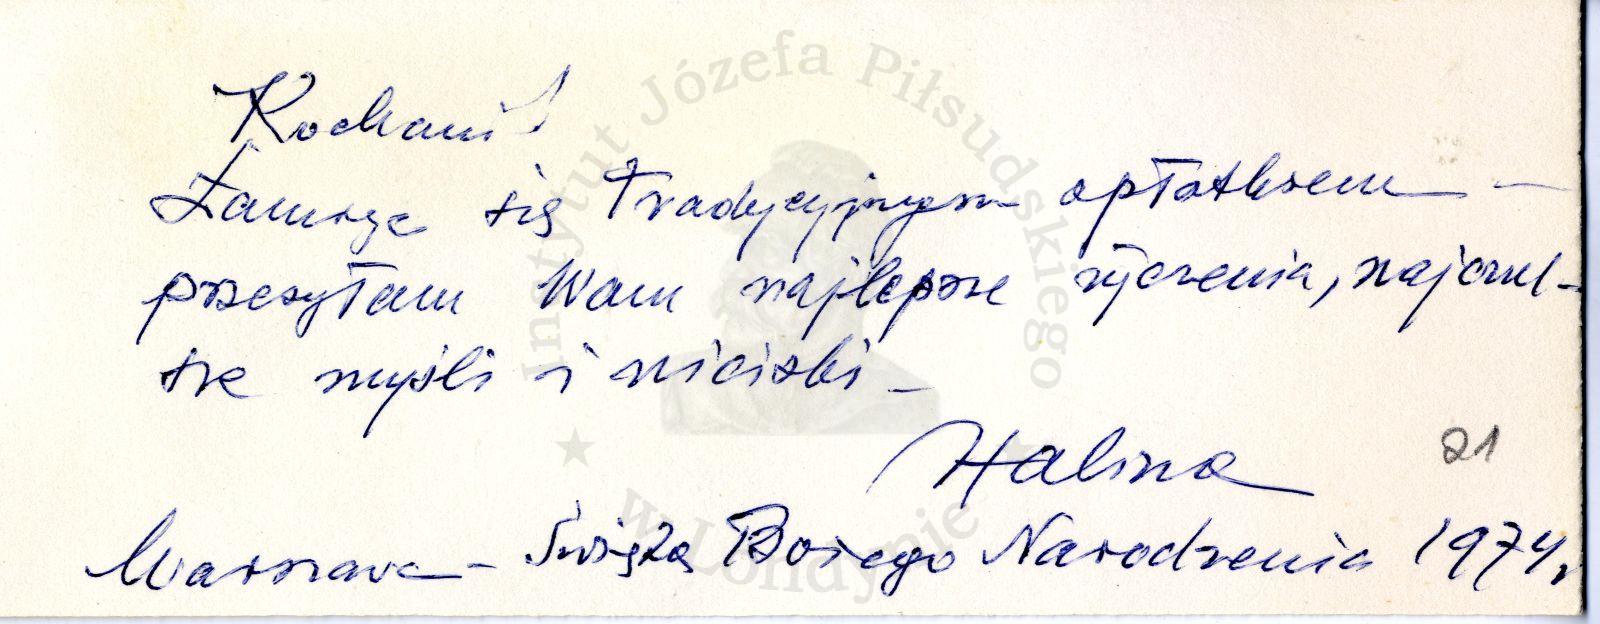 Kochani!
Łamiąc się tradycyjnym opłatkiem –
przesyłam Wam najlepsze życzenia, najczul-
sze myśli i uściski –
Halina
21
Warszawa – Święta Bożego Narodzenia 1974r.
Instytut Józefa Piłsudskiego
w Londynie